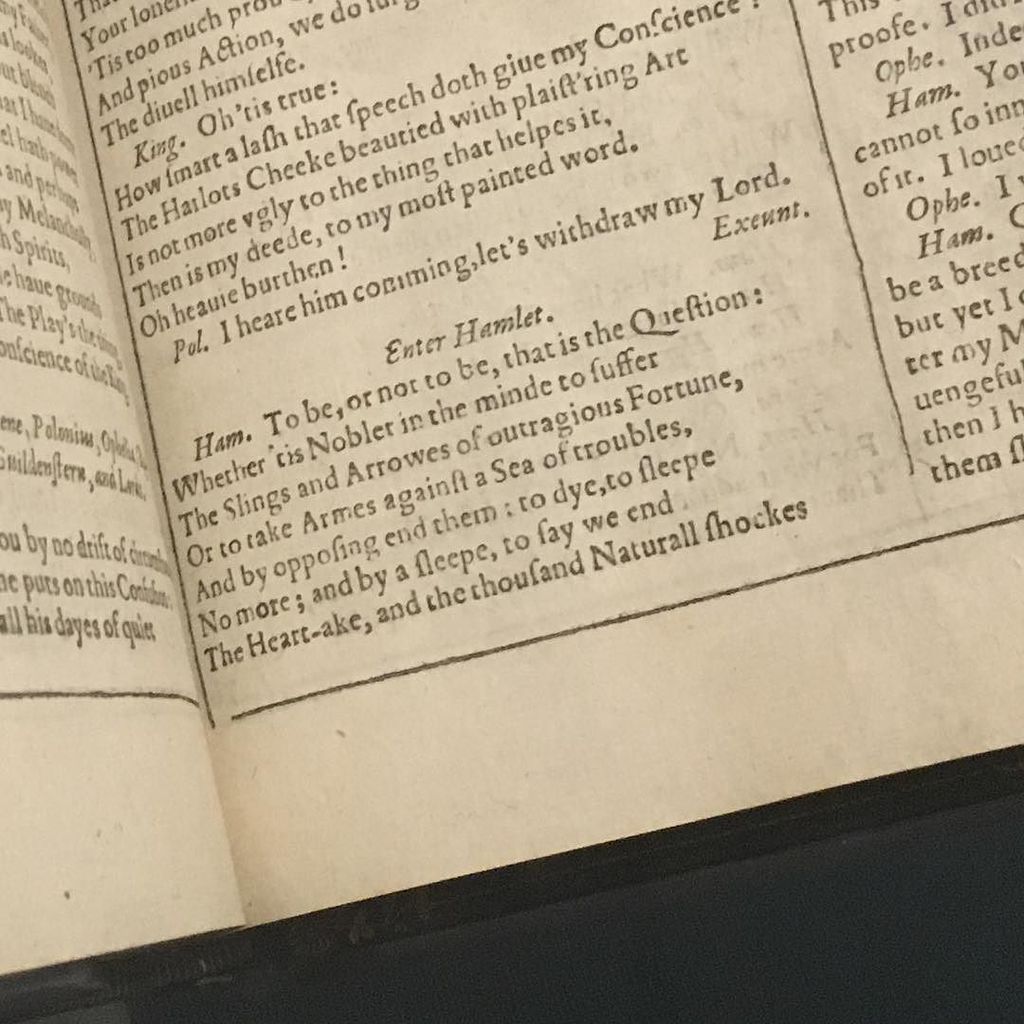 my
lookes,
hath
and perhaps
my Melancholly,
Spirits,
haue grounds
The Play's the thing,
Conscience of the King.
Polonius, Ophelia,
Guildenstern, and Lords.
you by no drift of
he puts on this Confusion:
all his dayes of quiet
Your
'Tis too much
And pious Action, we do
The diuell himselfe.
King. Oh 'tis true:
How ſmart a laſh that ſpeech doth giue my Conſcience?
The Harlots Cheeke beautied with plaiſt'ring Art
Is not more vgly to the thing that helpes it,
Then is my deede, to my moſt painted word.
Oh heauie burthen!
Pol. I heare him comming, let's withdraw my Lord.
Exeunt.
Enter Hamlet.
Ham. To be, or not to be, that is the Queſtion:
Whether 'tis Nobler in the minde to ſuffer
The Slings and Arrowes of outragious Fortune,
Or to take Armes againſt a Sea of troubles,
And by oppoſing end them: to dye, to ſleepe
No more; and by a ſleepe, to ſay we end
The Heart-ake, and the thouſand Naturall ſhockes
This
proofe. I did
Ophe. Inde
Ham. You
cannot ſo inn
of it. I loued
Ophe. I
Ham.
be a breed
but yet I
ter my M
uengeful
then I h
them